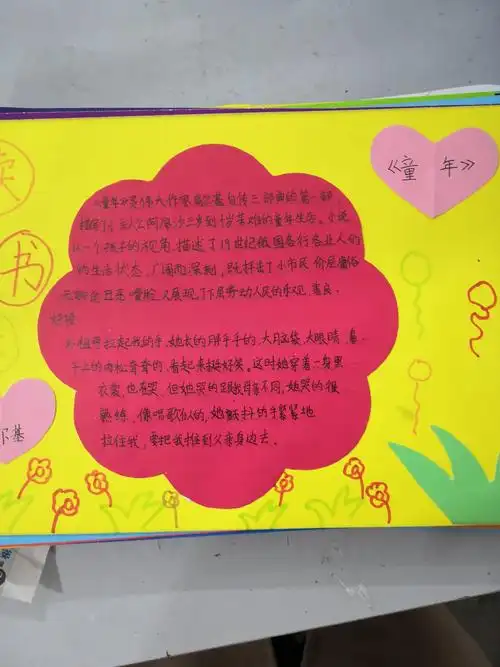 《童年》
读
书
《童年》是伟大作家高尔基自传三部曲的第一部,
描写了主人公阿廖沙三岁到十岁苦难的童年生活。小说
从一个孩子的视角描述了19世纪俄国各行各业人们
的生活状态,广阔而深刻,既抒出了小市民阶层庸俗
丑恶嘴脸,又展现了下层劳动人民的乐观、善良。
好段
外祖母拉起我的手,她长的胖乎乎的,大脑袋,大眼睛,鼻
子上的肉松奇奇的,看起来挺好笑。这时她穿着一身黑
衣裳,也在哭,但她哭的跟母亲不同,她哭的很
熟练,像唱歌似的,她颤抖的手紧紧地
拉住我,要把我推到父亲身边去。
尔基